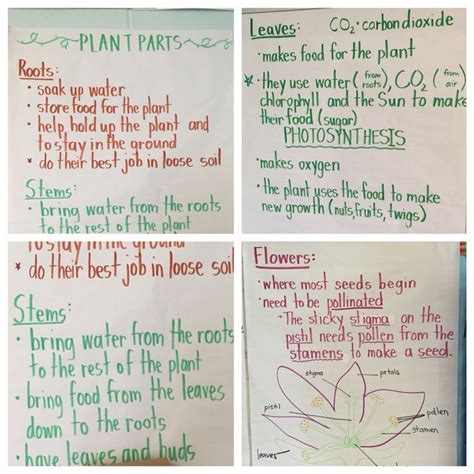 PLANT PARTS
Roots:
• soak up water
• store food for the plant
• help hold up the plant and
to stay in the ground
* do their best job in loose soil
Stems:
• bring water from the roots
to the rest of the plant
Leaves: CO₂ • carbon dioxide
• makes food for the plant
* • they use water (from roots), CO₂ (from air)
chlorophyll and the Sun to make
their food (sugar)
PHOTOSYNTHESIS
• makes oxygen
• the plant uses the food to make
new growth (nuts, fruits, twigs)
to stay in the ground
* do their best job in loose soil
Stems:
• bring water from the roots
to the rest of the plant
• bring food from the leaves
down to the roots
• have leaves and buds
Flowers:
• where most seeds begin
• need to be pollinated
• The sticky stigma on the
pistil needs pollen from the
stamens to make a seed.
stigma
petals
pistil
pollen
stamen
leaves